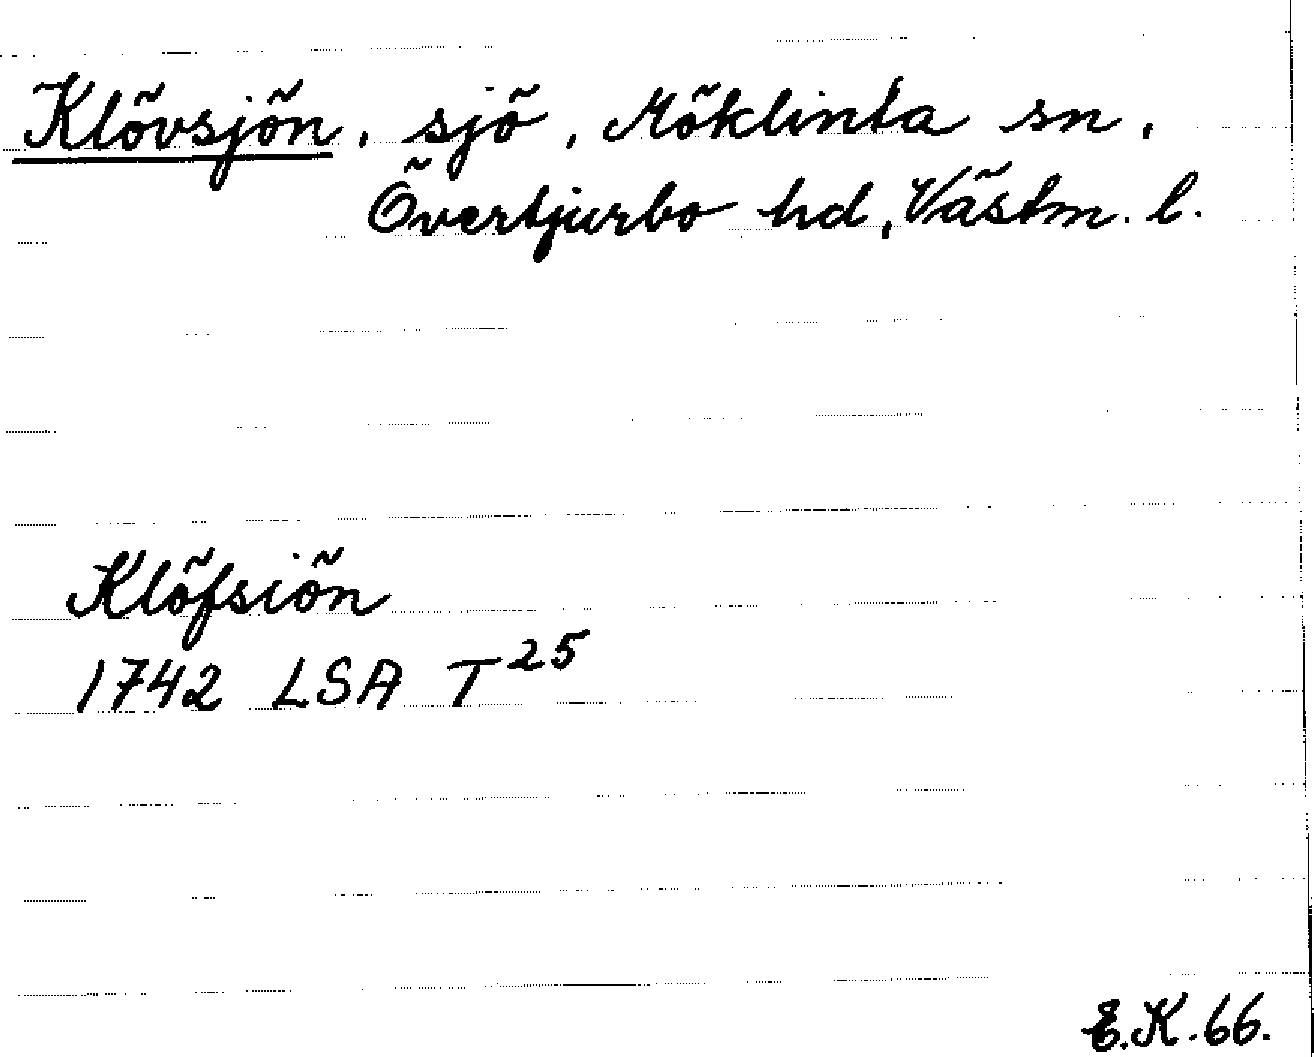 Klövsjön, sjö, Möklinta sn,
Övertjurbo hd, Västm. l.
Klöfsiön
1742 LSA T²⁵
E.K. 66.